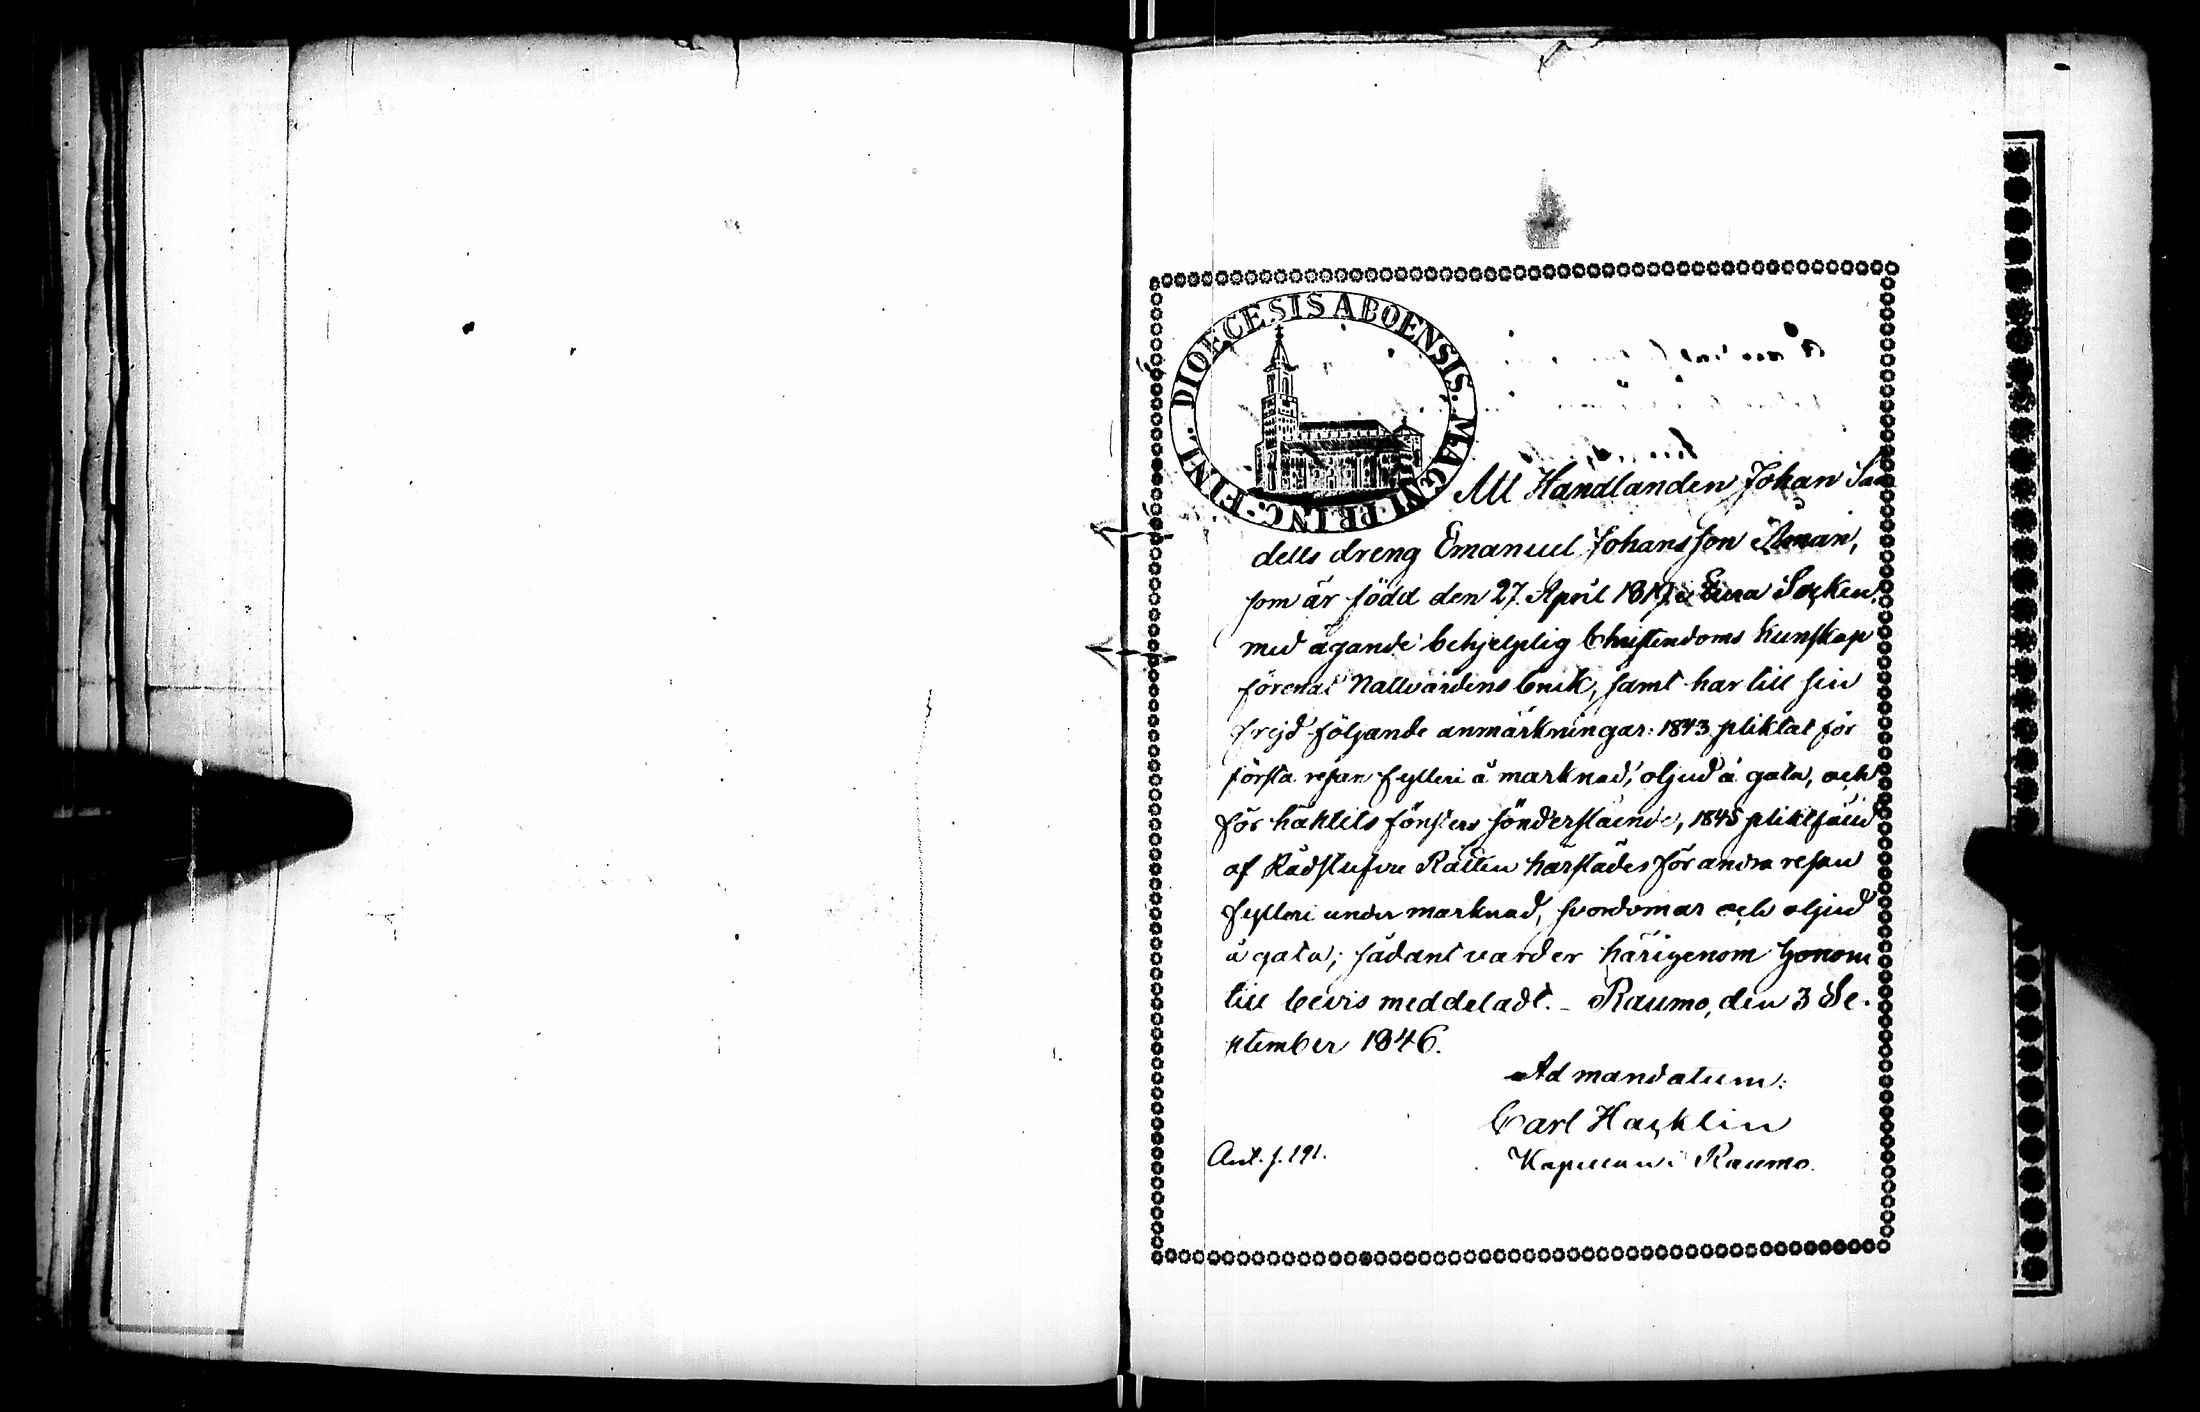 DIOECESIS ABOENSIS. MAGNI PRINC. FINL.
Att Handlanden Johan San
dells dreng Emanuel Johansson
som är född den 27. April 1819 i Eura Socken,
med ägande behjelplig Christendoms kunskap
förenat Nattvardens bruk, samt har till sin
frejd följande anmärkningar: 1843 pliktat för
första resan fylleri å marknad, oljud å gata, och
för häktets fönsters sönderslående, 1845 pliktfäld
af Rådstufvu Rätten härstädes för andra resan
fylleri under marknad, svordomar och oljud
å gata; sådant varder härigenom honom
till bevis meddeladt. - Raumo, den 3 Se-
ptember 1846.
Ad mandatum:
Carl Hacklin
Kapellan i Raumo.
Ant. f. 191.